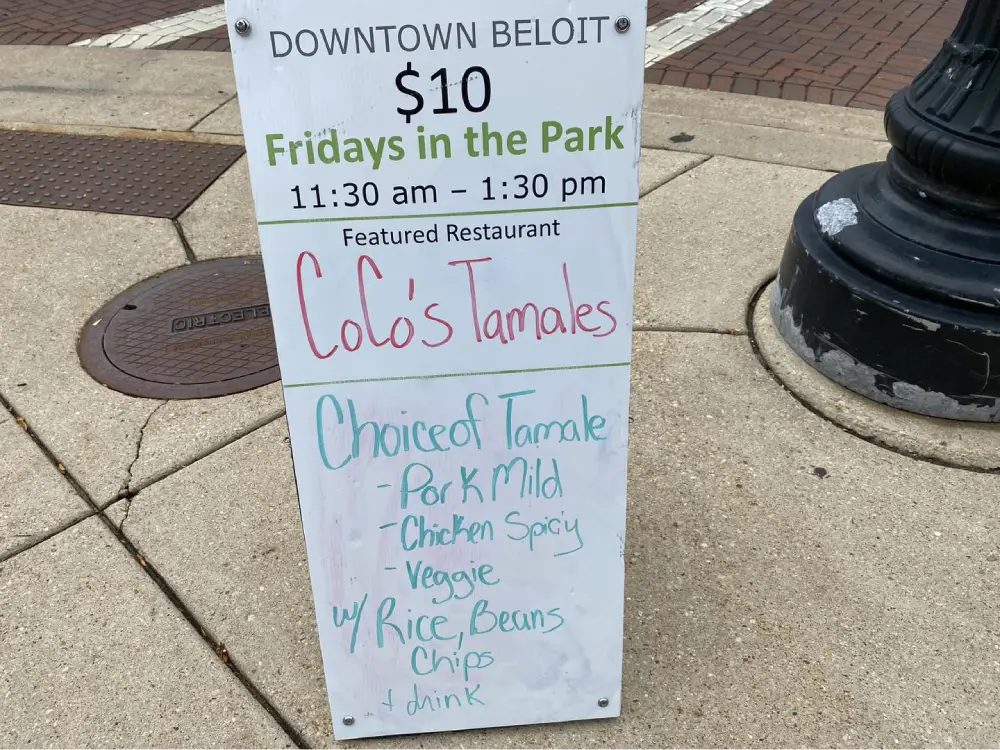 DOWNTOWN BELOIT
$10
Fridays in the Park
11:30 am – 1:30 pm
Featured Restaurant
CoCo's Tamales
Choice of Tamale
- Pork Mild
- Chicken Spicy
- Veggie
w/ Rice, Beans
Chips
+ drink
ELECTRIC